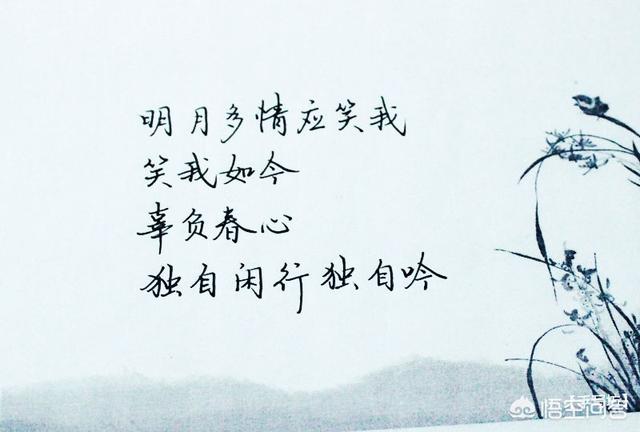 明月多情应笑我
笑我如今
辜负春心
独自闲行独自吟
悟空问答